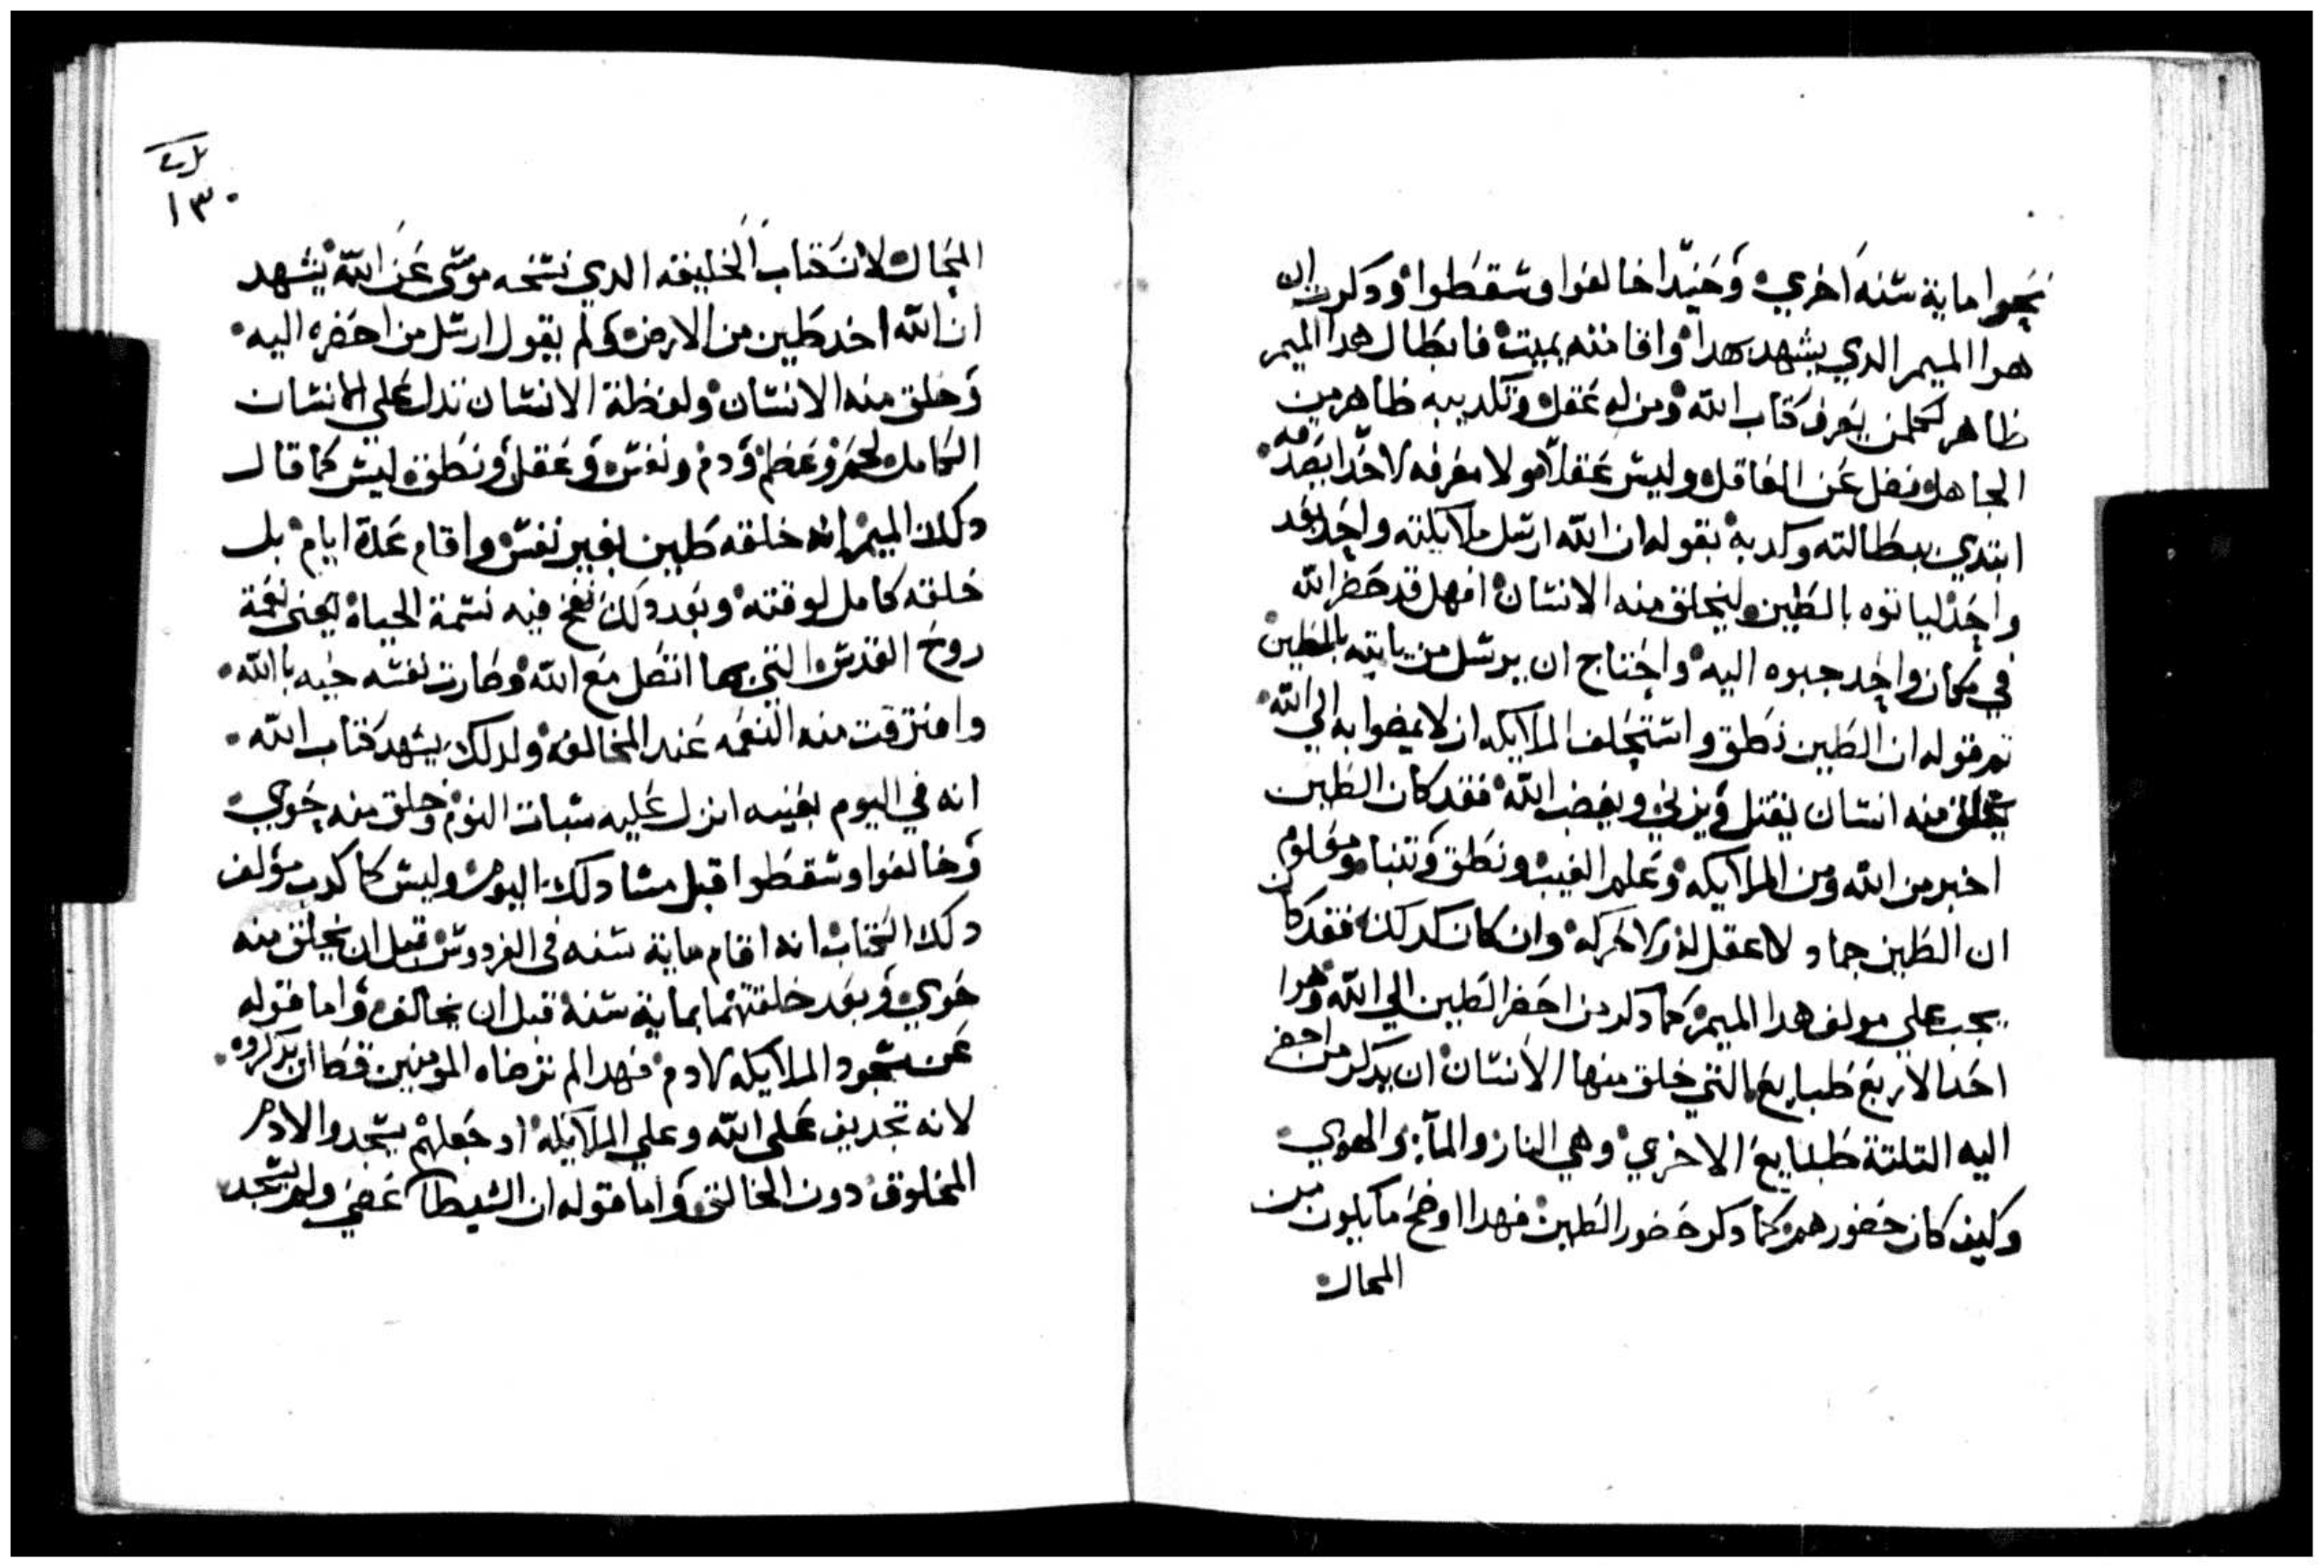 نحوا ماية سنه اخري وحنيدا خالفوا وسقطوا ودكر ان
هدا الميمر الدي يشهد بهدا وافا منه يميت فابطال هدا الميمر
ظاهر لكلمن يعرف كتاب الله ومن له عقل وتكديبه ظاهر من
الجاهل فضل عن العاقل وليس عقلا هو لا معرفه لاحدا يصدقه
ابتدي ببطالته وكدبه بقوله ان الله ارسل ملايكته واحد بعد
واحد لياتوه بالطين ليخلق منه الانسان افهل قد حضر الله
في مكان واحد جبوه اليه واحتاج ان يرسل من ياتيه بالطين
تم قوله ان الطين نطق واستحلف الملايكه ان لا يمضوا به الي الله
يخلق منه انسان يقتل ويزني ويغضب الله فقد كان الطين
اخبر من الله ومن الملايكه وعلم الغيب ونطق وتنبا ومعلوم
ان الطين جماد لا عقل له ولا حركه وان كان كدلك فقد كان
يجب علي مولف هدا الميمر كما دكر من احضر الطين الي الله وهوا
احد الاربع طبايع التي خلق منها الانسان ان يدكر من احضر
اليه التلتة طبايع الاخري وهي النار والمآء والهوي
وكيف كان حضورهم كما دكر حضور الطين فهدا اوضح ما يكون من
المحال
١٣٠
المحال لان كتاب الخليفه الدي نسخه موسي عن الله يشهد
ان الله اخد طين من الارض ولم يقول ارسل من احضره اليه
وخلق منه الانسان ولفظة الانسان تدل علي الانسان
الكامل لحم وعظم ودم ونفس وعقل ونطق ليس كما قال
دلك الميمر انه خلقه طين بغير نفس واقام عدة ايام بل
خلقه كامل لوقته وبعد دلك نفخ فيه نسمة الحياه يعني نعمة
روح القدس التي بها اتصل مع الله وصارت نفسه حيه باالله
وافترقت منه النعمه عند المخالفه ولدلك يشهد كتاب الله
انه في اليوم بعينه انزل عليه سبات النوم وخلق منه حوي
وخالفوا وسقطوا قبل مسا دلك اليوم وليس كما كدب مؤلف
دلك الكتاب انه اقام ماية سنه في الفردوس قبل ان يخلق منه
حوي وبعد خلقتهما بماية سنة قبل ان يخالفوه واما قوله
عن سجود الملايكه لادم فهدا لم ترضاه المومنين قط ان يدكروه
لانه تجديف علي الله وعلي الملايكه اد جعلهم يسجدوا لادم
المخلوق دون الخالق واما قوله ان الشيطان عصي ولم يسجد